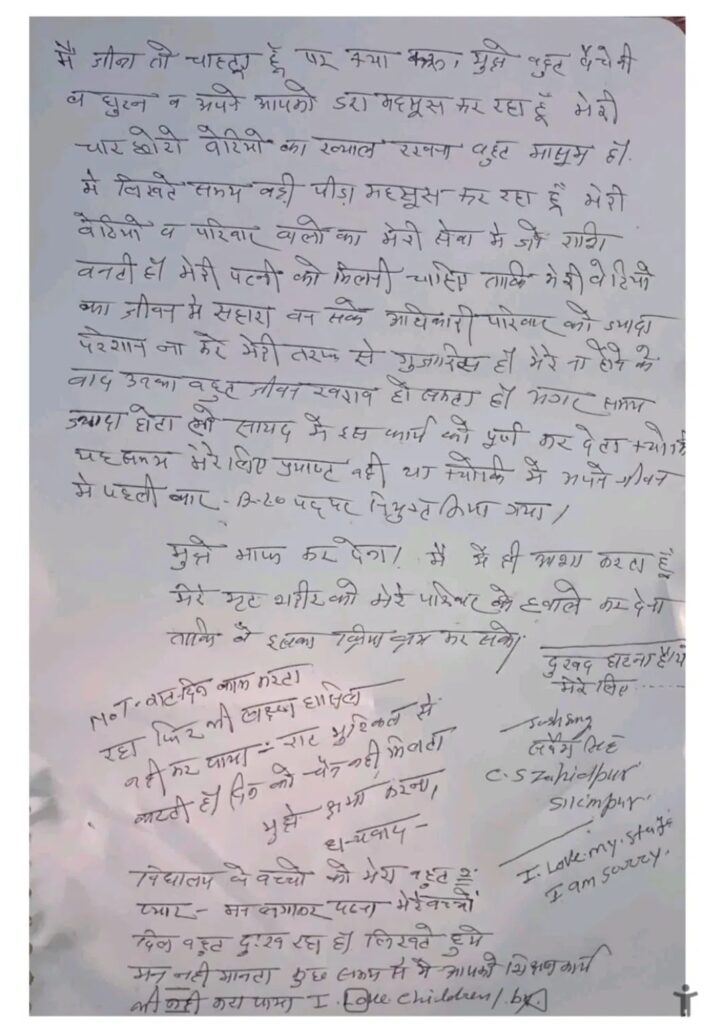 मैं जीना तो चाहता हूँ पर क्या करू, मुझे बहुत बैचेनी
व घुटन व अपने आपको डरा महसूस कर रहा हूँ मेरी
चार छोटी बेटियो का ख्याल रखना बहुत मासूम हैं।
मैं लिखते समय बड़ी पीड़ा महसूस कर रहा हूँ मेरी
बेटियो व परिवार वालो का मेरी सेवा में जो राशि
बनती हो मेरी पत्नी को मिलनी चाहिए ताकि मेरी बेटियो
का जीवन मे सहारा बन सके अधिकारी परिवार को ज्यादा
परेशान ना करे मेरी तरफ से गुजारिस हैं मेरे ना होने के
बाद उनका बहुत जीवन खराब हो सकता हैं अगर समय
ज्यादा होता तो सायद मैं इस कार्य को पूर्ण कर देता क्योकि
यह समय मेरे लिए प्रयाप्त नही था क्योकि मैं अपने जीवन
मे पहली बार B.L.O पद पर नियुक्त किया गया।
मुझे माफ कर देना। मैं ही आशा करता हूँ
मेरे मृत शरीर को मेरे परिवार के हवाले कर देना
ताकि वे इसका क्रिया क्रम कर सके।
दुखद घटना है ये
मेरे लिए
N.T- रात दिन काम करता
रहा फिर भी लक्ष्य हासिल
नही कर पाया - रात मुश्किल से
कटती हैं दिन को चैन नही मिलता
मुझे क्षमा करना,
धन्यवाद -
सर्वेश सिंह
C.S Zahidpur
Silimpur
I. Love. my. staff
I am sorry.
विद्यालय के बच्चो को मेरा बहुत 2
प्यार - मन लगाकर पढना मेरे बच्चों
दिल बहुत दुःख रहा हैं लिखते हुये
मन नही मानता कुछ समय से मैं आपको शिक्षण कार्य
भी नही करा पाया I. Love children/ by.